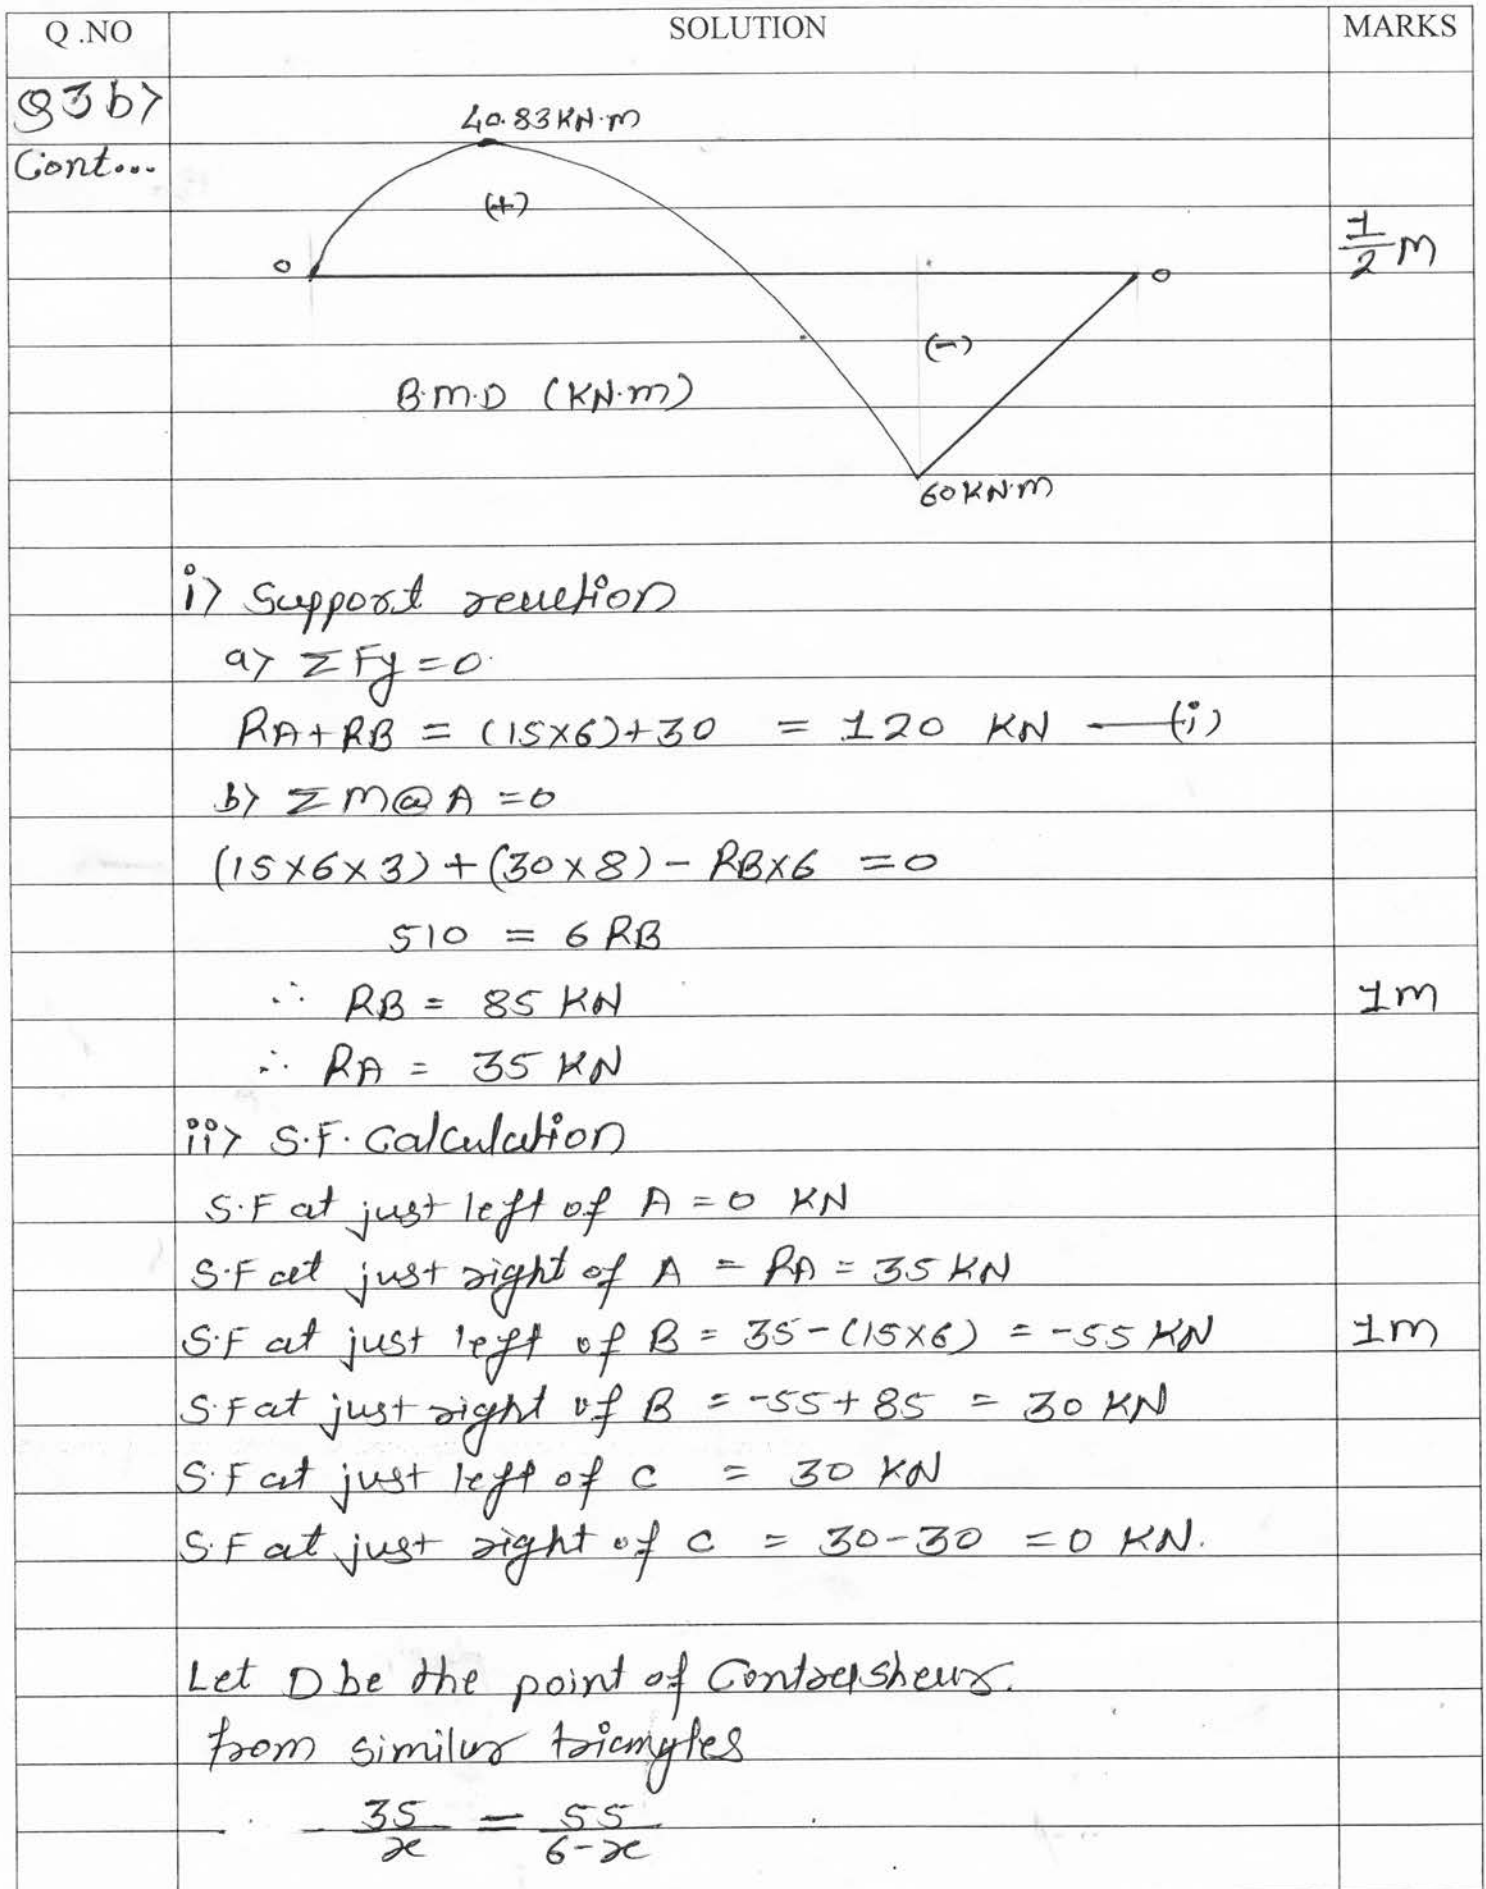 Q.NO SOLUTION MARKS
Q3 b>
Cont...
40.83 KN.m
(+)
0 0
1/2 m
(-)
B.M.D (KN.m)
60 KN.m
i> Support reaction
a> ΣFy = 0
RA + RB = (15×6)+30 = 120 KN —(i)
b> ΣM@A = 0
(15×6×3) + (30×8) - RB×6 = 0
510 = 6 RB
∴ RB = 85 KN 1m
∴ RA = 35 KN
ii> S.F. Calculation
S.F at just left of A = 0 KN
S.F at just right of A = RA = 35 KN
S.F at just left of B = 35-(15×6) = -55 KN 1m
S.F at just right of B = -55+85 = 30 KN
S.F at just left of C = 30 KN
S.F at just right of C = 30-30 = 0 KN.
Let D be the point of Contrashear.
from similar triangles
35/x = 55/6-x